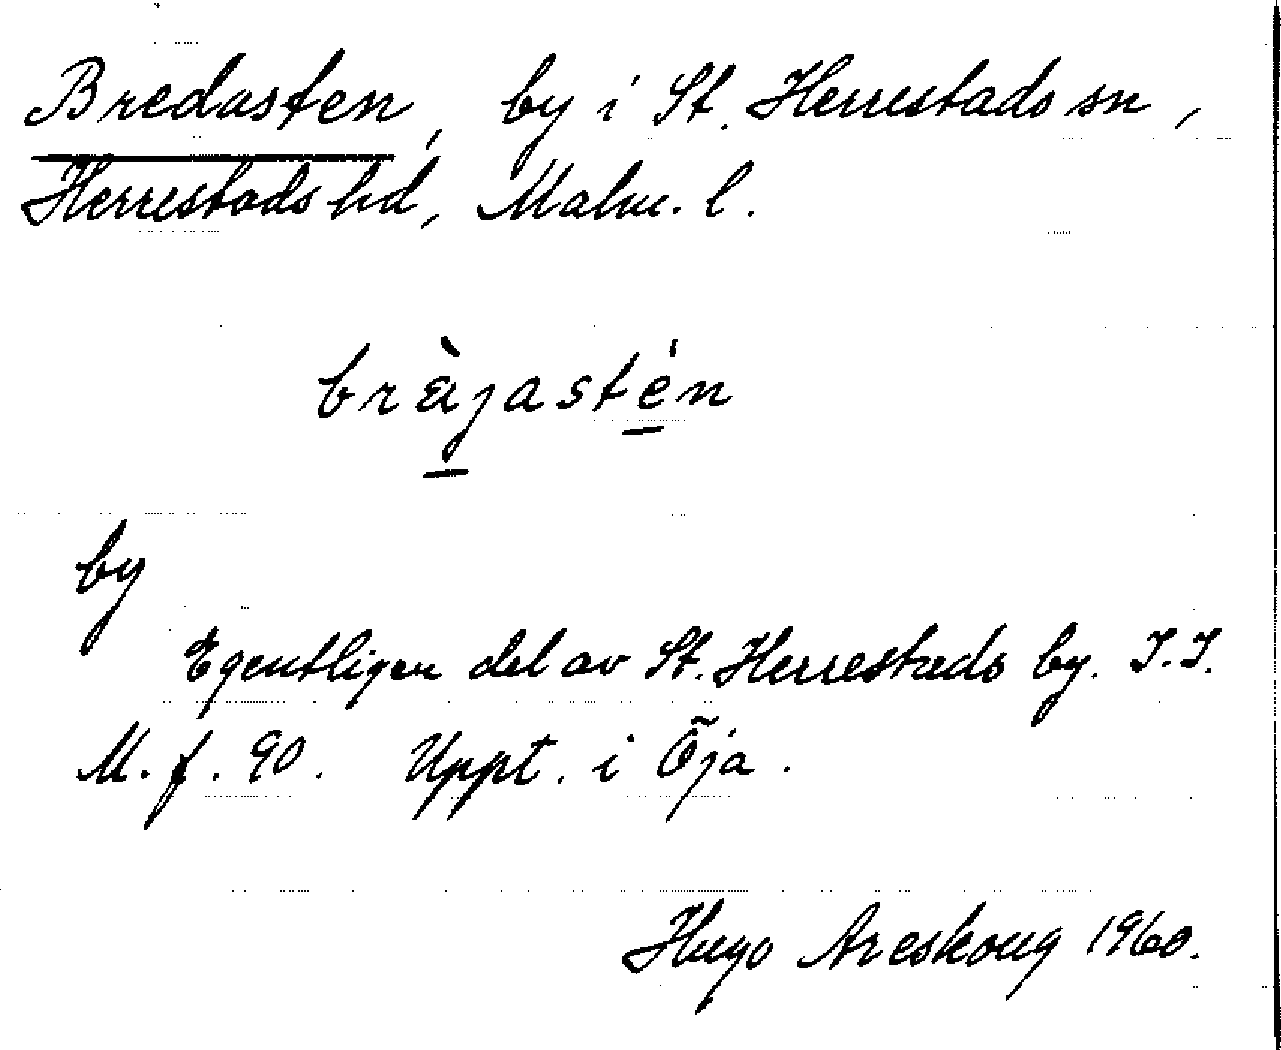 Bredasten, by i St. Herrestads sn,
Herrestads hd, Malm. l.
bràjastén
by
Egentligen del av St. Herrestads by. I.I.
M. f. 90. Uppt. i Öja.
Hugo Areskoug 1960.